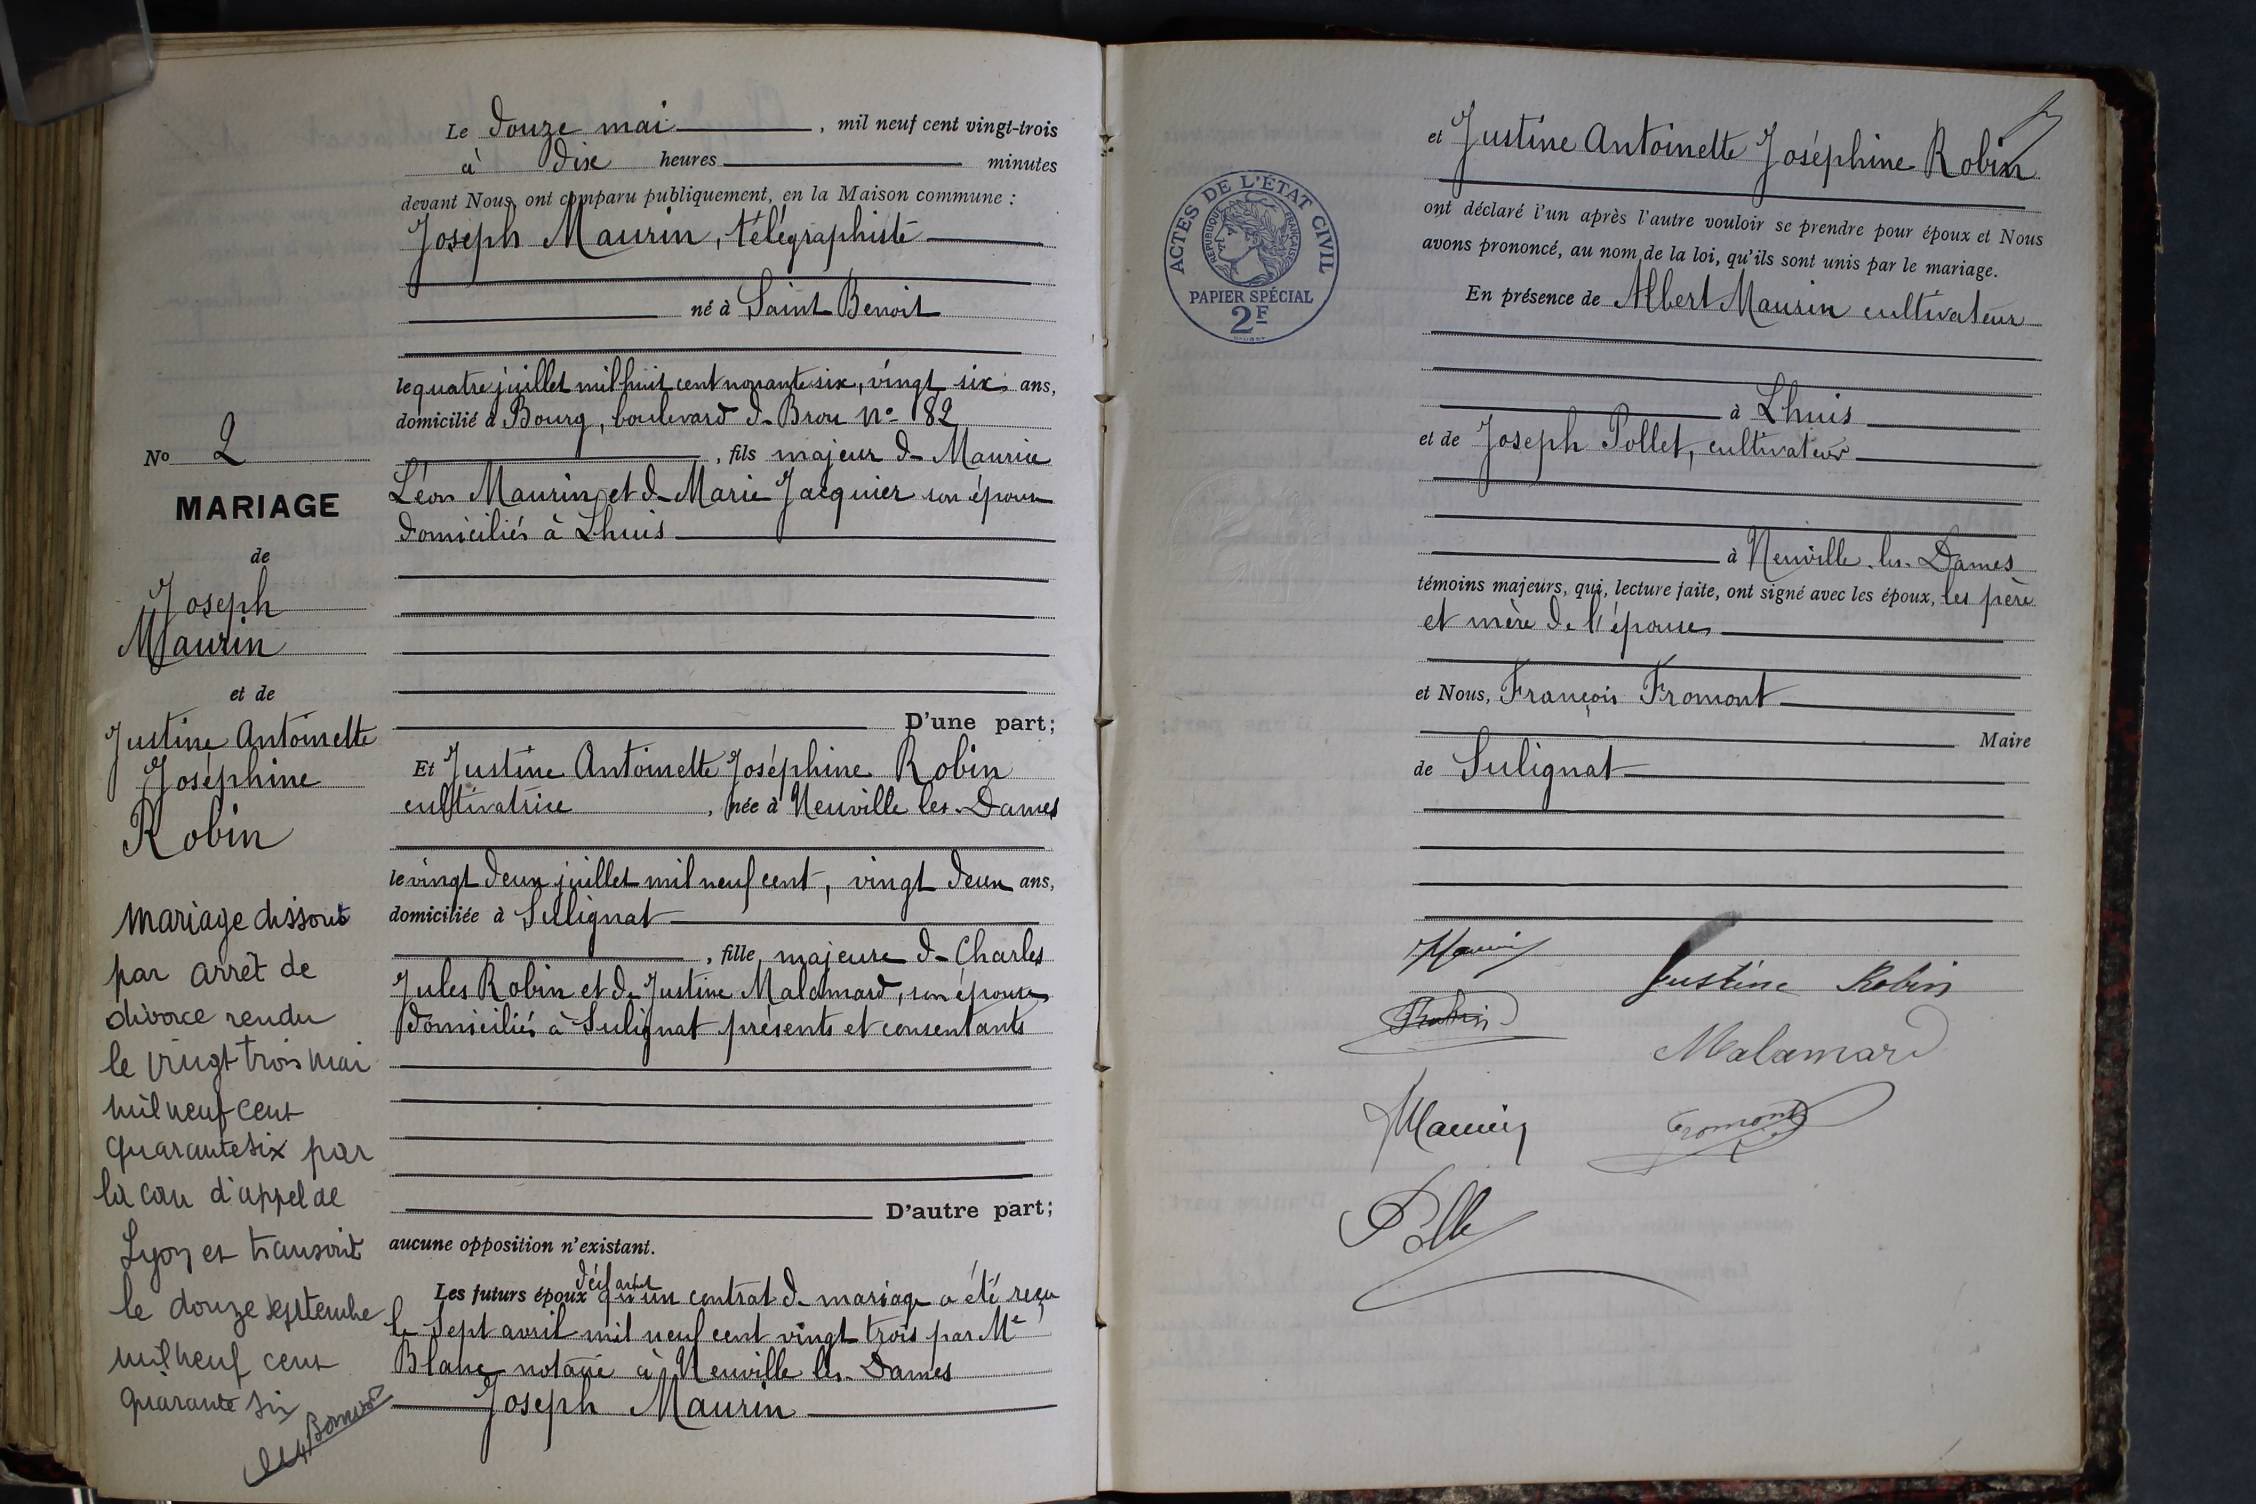 Le douze mai, mil neuf cent vingt-trois
à dix heures minutes
devant Nous, ont comparu publiquement, en la Maison commune :
Joseph Maurin, télégraphiste
né à Saint Benoit
le quatre juillet mil huit cent nonante six, vingt six ans,
domicilié à Bourg, boulevard de Brou No 82
, fils majeur de Maurice
Léon Maurin et de Marie Jacquier son épouse
domiciliés à Lhuis
D'une part;
Et Justine Antoinette Joséphine Robin
cultivatrice, née à Neuville les-Dames
le vingt deux juillet mil neuf cent, vingt deux ans,
domiciliée à Sulignat
, fille majeure de Charles
Jules Robin et de Justine Malamard, son épouse
domiciliés à Sulignat présents et consentants
D'autre part;
aucune opposition n'existant.
déclarent
Les futurs époux qu'un contrat de mariage a été reçu
le sept avril mil neuf cent vingt trois par Me
Blanc notaire à Neuville les-Dames
Joseph Maurin
No 2
MARIAGE
de
Joseph
Maurin
et de
Justine Antoinette
Joséphine
Robin
Mariage dissout
par arrêt de
divorce rendu
le vingt trois mai
mil neuf cent
quarante six par
la cour d'appel de
Lyon et transcrit
le douze septembre
mil neuf cent
quarante six
et Justine Antoinette Joséphine Robin
ont déclaré l'un après l'autre vouloir se prendre pour époux et Nous
avons prononcé, au nom de la loi, qu'ils sont unis par le mariage.
En présence de Albert Maurin cultivateur
à Lhuis
et de Joseph Pollet, cultivateur
à Neuville-les-Dames
témoins majeurs, qui, lecture faite, ont signé avec les époux, les père
et mère de l'épouse
et Nous, François Fromont
Maire
de Sulignat
ACTES DE L'ÉTAT CIVIL
RÉPUBLIQUE FRANÇAISE
PAPIER SPÉCIAL
2F
Maurin
Justine Robin
Robin
Malamard
Maurin
Fromont